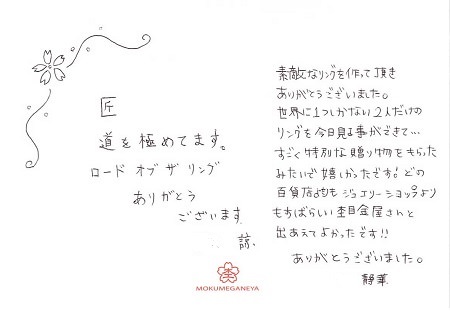 匠
道を極めてます。
ロード オブ ザ リング
ありがとう
ございます
諒.
素敵なリングを作って頂き
ありがとうございました。
世界に1つしかない2人だけの
リングを今日見る事ができて…
すごく特別な贈り物をもらった
みたいで嬉しかったです!どの
百貨店よりもジュエリーショップより
もすばらしい杢目金屋さんと
出あえてよかったです!!
ありがとうございました。
静華
MOKUMEGANEYA